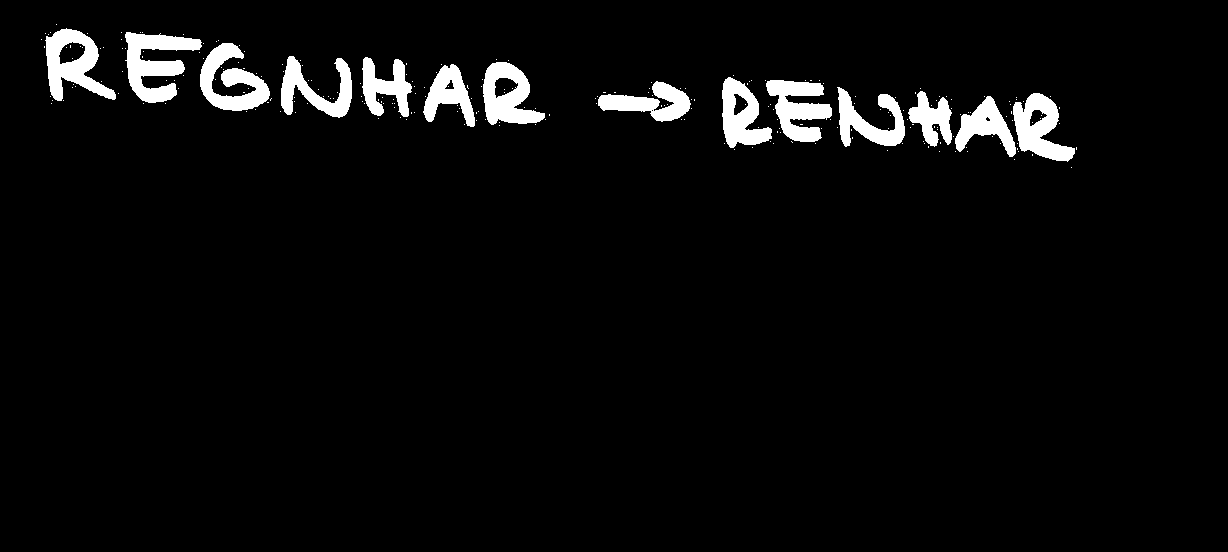 REGNHAR → RENHAR